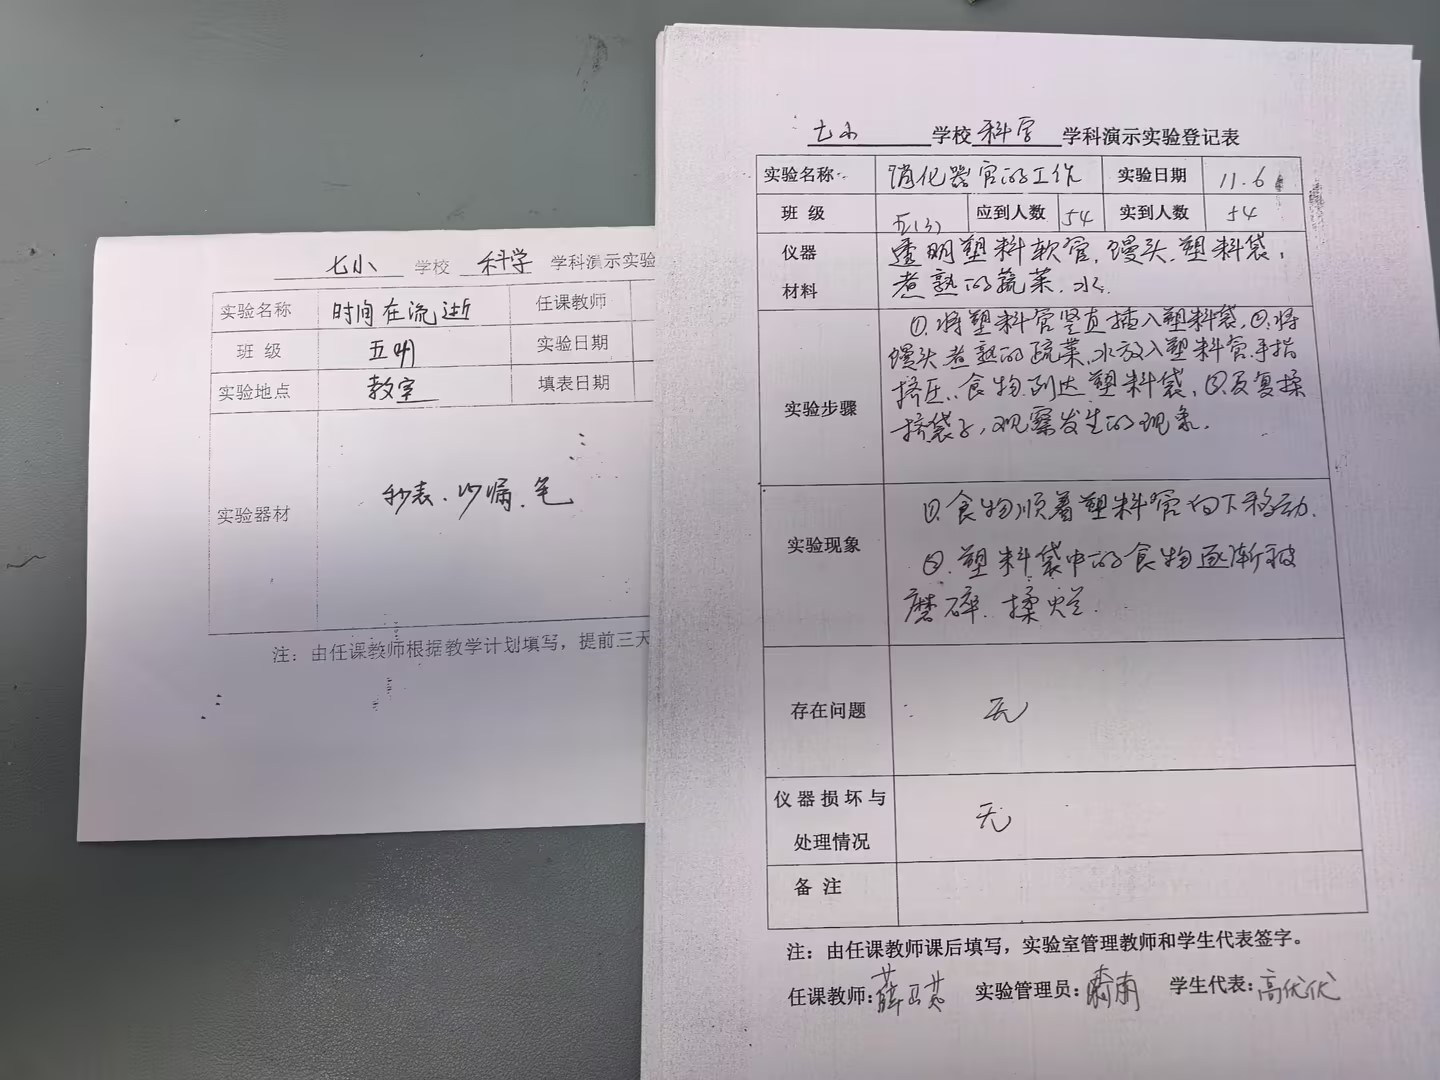 七小 学校 科学 学科演示实验
实验名称 时间在流逝 任课教师
班 级 五 实验日期
实验地点 教室 填表日期
实验器材 秒表、沙漏、笔
注：由任课教师根据教学计划填写，提前三天
七小 学校 科学 学科演示实验登记表
实验名称 消化器官的工作 实验日期 11.6
班 级 五(3) 应到人数 54 实到人数 54
仪器 透明塑料软管、馒头、塑料袋、
材料 煮熟的蔬菜、水.
①.将塑料管竖直插入塑料袋,②.将
馒头煮熟的蔬菜、水放入塑料管.手指
实验步骤 挤压,食物到达塑料袋,③反复揉
挤袋子,观察发生的现象.
①.食物顺着塑料管向下移动.
实验现象 ②.塑料袋中的食物逐渐被
磨碎、揉烂.
存在问题 无
仪器损坏与
处理情况 无
备 注
注：由任课教师课后填写，实验室管理教师和学生代表签字。
任课教师: 薛 实验管理员: 学生代表: 高优优